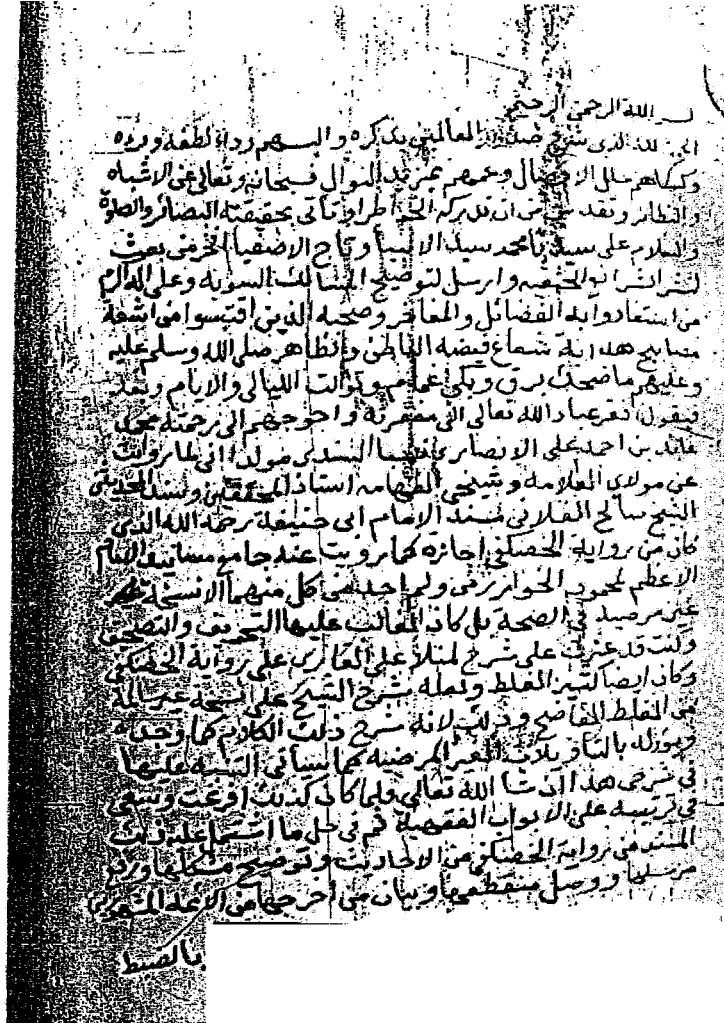 بسم الله الرحمن الرحيم
الحمد لله الذى شرح صدور العالمين بذكره والبسهم رداء لطفه وبره
وكساهم حلل الافضال وعمهم بمزيد النوال فسبحانه وتعالى عن الاشباه
والنظائر وتقدس من ان تدركه الخواطر او تأتى بحقيقته البصائر والصلوة
والسلام على سيدنا محمد سيد الانبيا وتاج الاصفيا الذى بعث
لنشر الشرائع الحنيفيه وارسل لتوضيح المسالك السويه وعلى اله الذين
من استعادوا به الفضائل والمفاخر وصحبه الذين اقتبسوا من اشعة
مصابيح هدايته شعاع فيضه الباطن والظاهر صلى الله وسلم عليه
وعليهم ما ضحك برق وبكى غمام وتوالت الليالى والايام وبعد
فيقول افقر عباد الله تعالى الى مغفرته واحوجهم الى رحمته محمد
عابد بن احمد على الانصارى السندى مولدا انى لما رويت
عن مولاى العلامه وشيخى الفهامه استاذ المحققين وسند المحدثين
الشيخ صالح الفلانى مسند الامام ابى حنيفة رحمه الله الذى
كان من رواية الحصكفى اجازه كما رويت عنه جامع مسانيد الامام
الاعظم لمحمود الخوارزمى ولم اجد من كل منهما الا نسخة
غير مرضيه فى الصحة بل كان الغالب عليها التحريف والتصحيف
وكنت قد عثرت على شرح لمنلا على القارى على رواية الحصكفى
وكان ايضا كثير الغلط ولعله شرح الشيخ على نسخة غير سالمة
من الغلط الفاضح وذلك لانه شرح ذلك الكلام كما وجده
ويؤوله بالتأويلات الغير المرضيه كما سيأتى التنبيه عليها
فى شرحى هذا ان شا الله تعالى فلما كان كذلك افرغت وسعى
فى ترتيبه على الابواب الفقهية ثم فى حل ما اشتمل عليه ذلك
المسند من رواية الحصكفى من الاحاديث وتوضيح مشكلها ورفع
مرسلها ووصل منقطعها وبيان من اخرجها من الائمه المشهورين
بالضبط